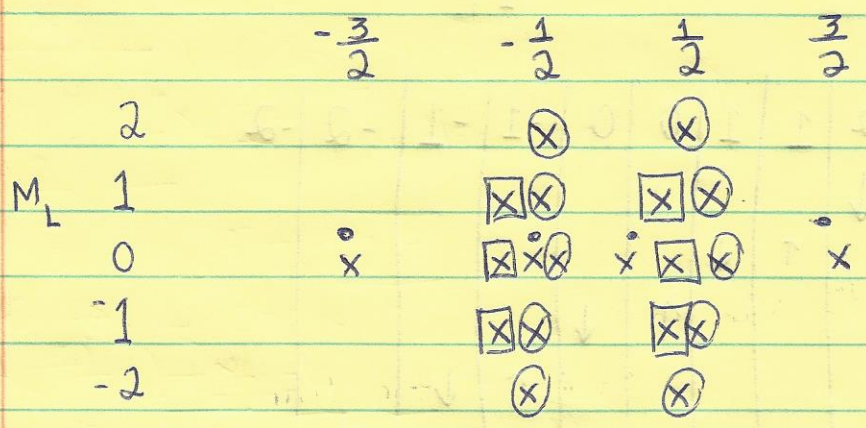 -3/2 -1/2 1/2 3/2
2 x x
M_L 1 x x x x
0 x x x x x x x x
-1 x x x x
-2 x x